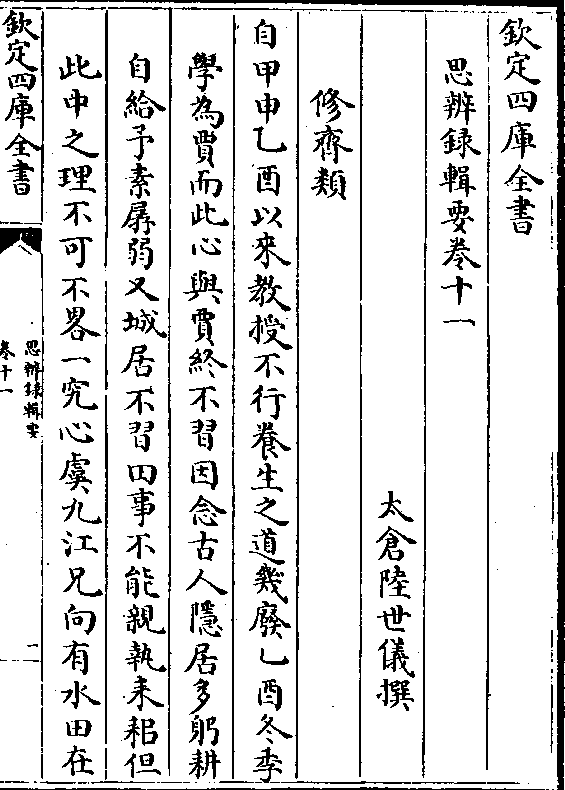 欽定四庫全書
思辨録輯要卷十一
太倉陸世儀撰
修齊類
自甲申乙酉以來教授不行養生之道幾廢乙酉冬季
學為賈而此心與賈終不習因念古人隱居多躬耕
自給予素孱弱又城居不習田事不能親執耒耜但
此中之理不可不畧一究心虞九江兄向有水田在
欽定四庫全書
思辨録輯要
卷十一
一